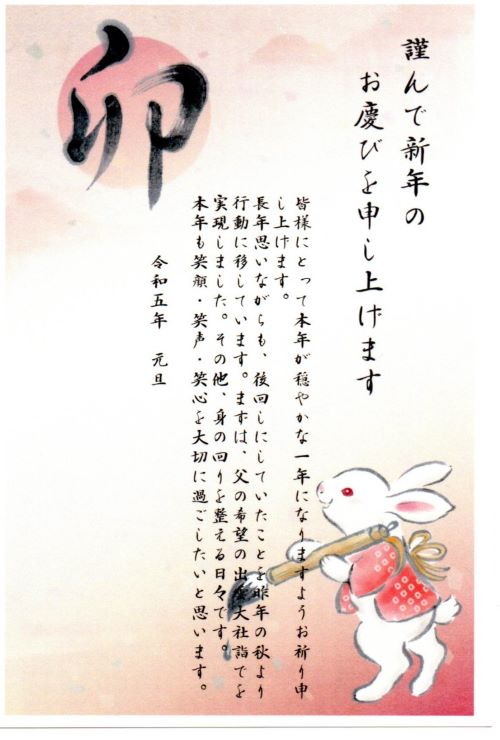 謹んで新年の
お慶びを申し上げます
皆様にとって本年が穏やかな一年になりますようお祈り申
し上げます。
長年思いながらも、後回しにしていたことを昨年の秋より
行動に移しています。まずは、父の希望の出雲大社詣でを
実現しました。その他、身の回りを整える日々です。
本年も笑顔・笑声・笑心を大切に過ごしたいと思います。
令和五年　元旦
卯